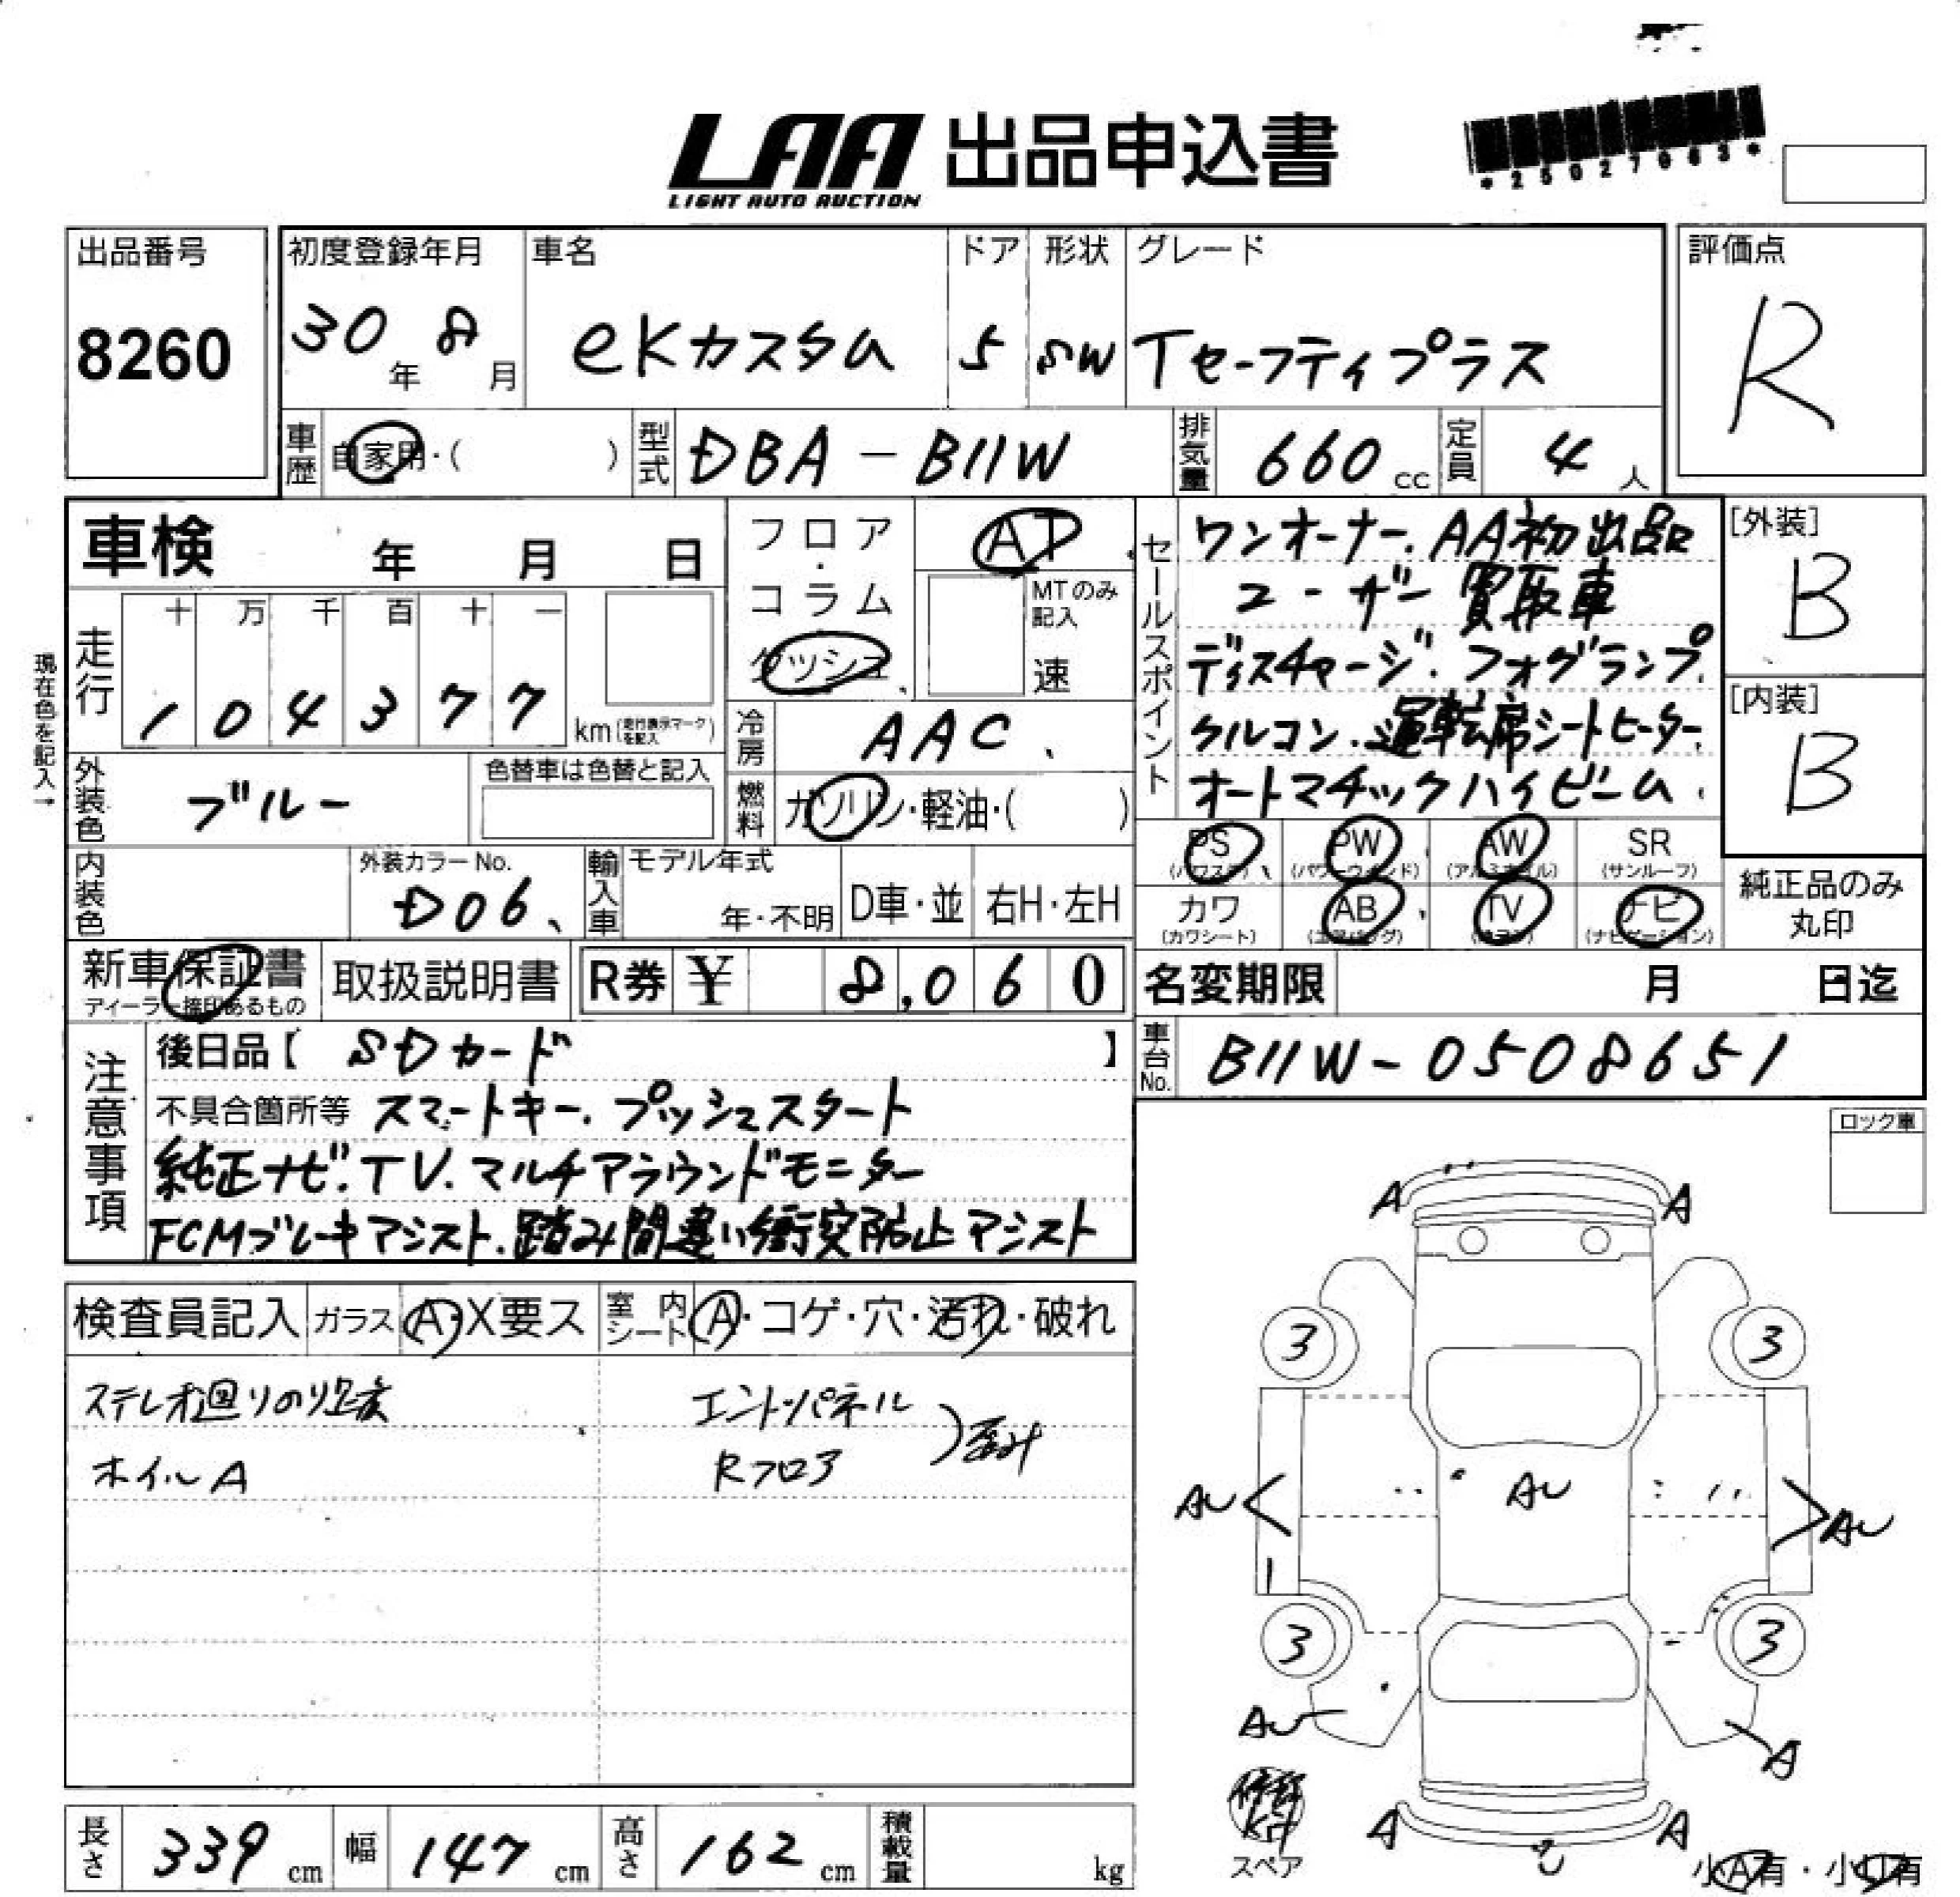 LAA 出品申込書
LIGHT AUTO AUCTION
*25027063*
出品番号
8260
初度登録年月
30年 8月
車名
eKカスタム
ドア
5
形状
SW
グレード
Tセーフティプラス
評価点
R
車歴
自家用・( )
型式
DBA-B11W
排気量
660 cc
定員
4 人
車検 年 月 日
走行
十 万 千 百 十 一
1 0 4 3 7 7 km (走行表示マークを記入)
現在色を記入→
外装色
ブルー
色替車は色替と記入
内装色
外装カラーNo.
D06
フロア・コラム
ダッシュ
AT
MTのみ記入
速
冷房
AAC
燃料
ガソリン・軽油・( )
輸入車
モデル年式
年・不明
D車・並
右H・左H
セールスポイント
ワンオーナー.AA初出品
ユーザー買取車
ディスチャージ.フォグランプ.
クルコン.運転席シートヒーター.
オートマチックハイビーム.
[外装]
B
[内装]
B
PS (パワステ)
PW (パワーウィンド)
AW (アルミホイル)
SR (サンルーフ)
カワ (カワシート)
AB (エアバッグ)
TV
ナビ (ナビゲーション)
純正品のみ丸印
新車保証書
ディーラー捺印あるもの
取扱説明書
R券 ¥ 8,060
名変期限 月 日迄
車台No.
B11W-0508651
注意事項
後日品【 SDカード 】
不具合箇所等 スマートキー.プッシュスタート
純正ナビ.TV.マルチアラウンドモニター
FCMブレーキアシスト.踏み間違い衝突防止アシスト
ロック車
検査員記入
ガラス A・X要ス
室内シート A・コゲ・穴・汚れ・破れ
ステレオ廻りのり跡
ホイルA
エンドパネル
Rフロア
歪み
A A
3 3
AU AU AU
3 3
AU A
A A
スペア
修理
小A有・小U有
長さ 339 cm
幅 147 cm
高さ 162 cm
積載量 kg